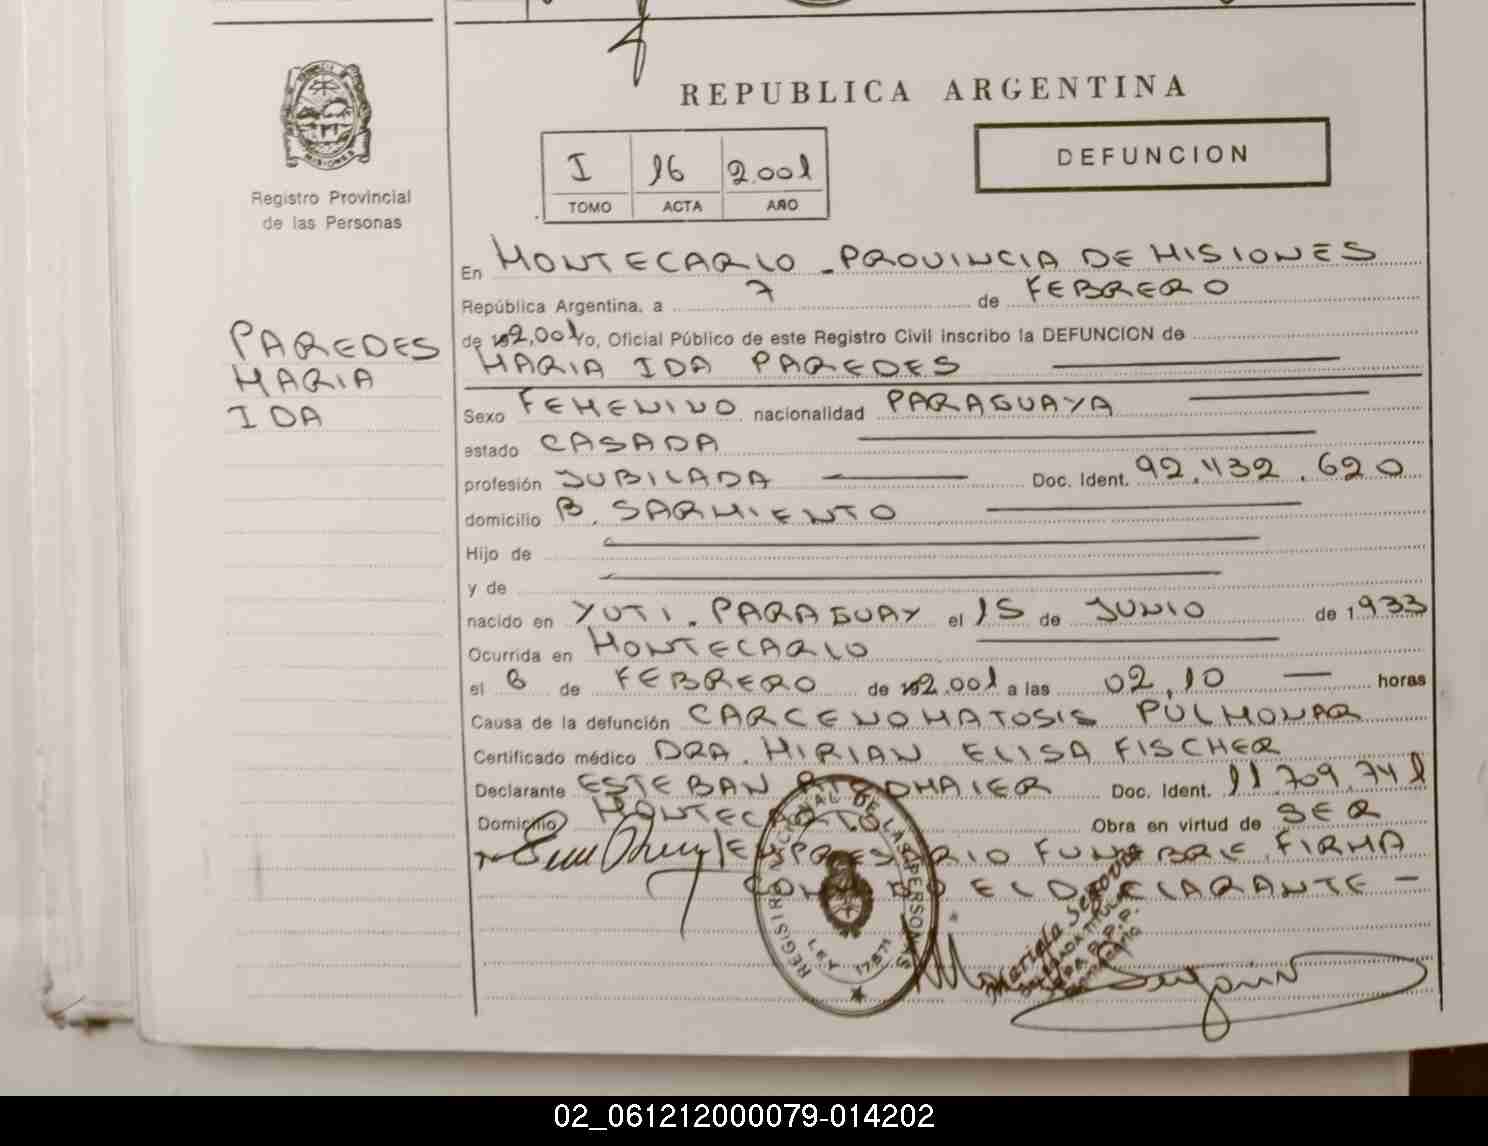 REPUBLICA ARGENTINA
I 16 2.001
TOMO ACTA AÑO
DEFUNCION
MISIONES
Registro Provincial
de las Personas
PAREDES
MARIA
IDA
En MONTECARLO - PROVINCIA DE MISIONES
República Argentina, a 7 de FEBRERO
de 2,001 Yo, Oficial Público de este Registro Civil inscribo la DEFUNCION de
MARIA IDA PAREDES
Sexo FEMENINO nacionalidad PARAGUAYA
estado CASADA
profesión JUBILADA Doc. Ident. 92.432.620
domicilio B. SARMIENTO
Hijo de
y de
nacido en YUTI. PARAGUAY el 15 de JUNIO de 1933
Ocurrida en MONTECARLO
el 6 de FEBRERO de 2.001 a las 02,10 horas
Causa de la defunción CARCENOMATOSIS PULMONAR
Certificado médico DRA. MIRIAN ELISA FISCHER
Declarante ESTEBAN Doc. Ident. 11.709.741
Domicilio MONTECARLO Obra en virtud de SER
EMPRESARIO FUNEBRE. FIRMA
CONMIGO EL DECLARANTE -
REGISTRO NACIONAL DE LAS PERSONAS
LEY 17671
02_061212000079-014202